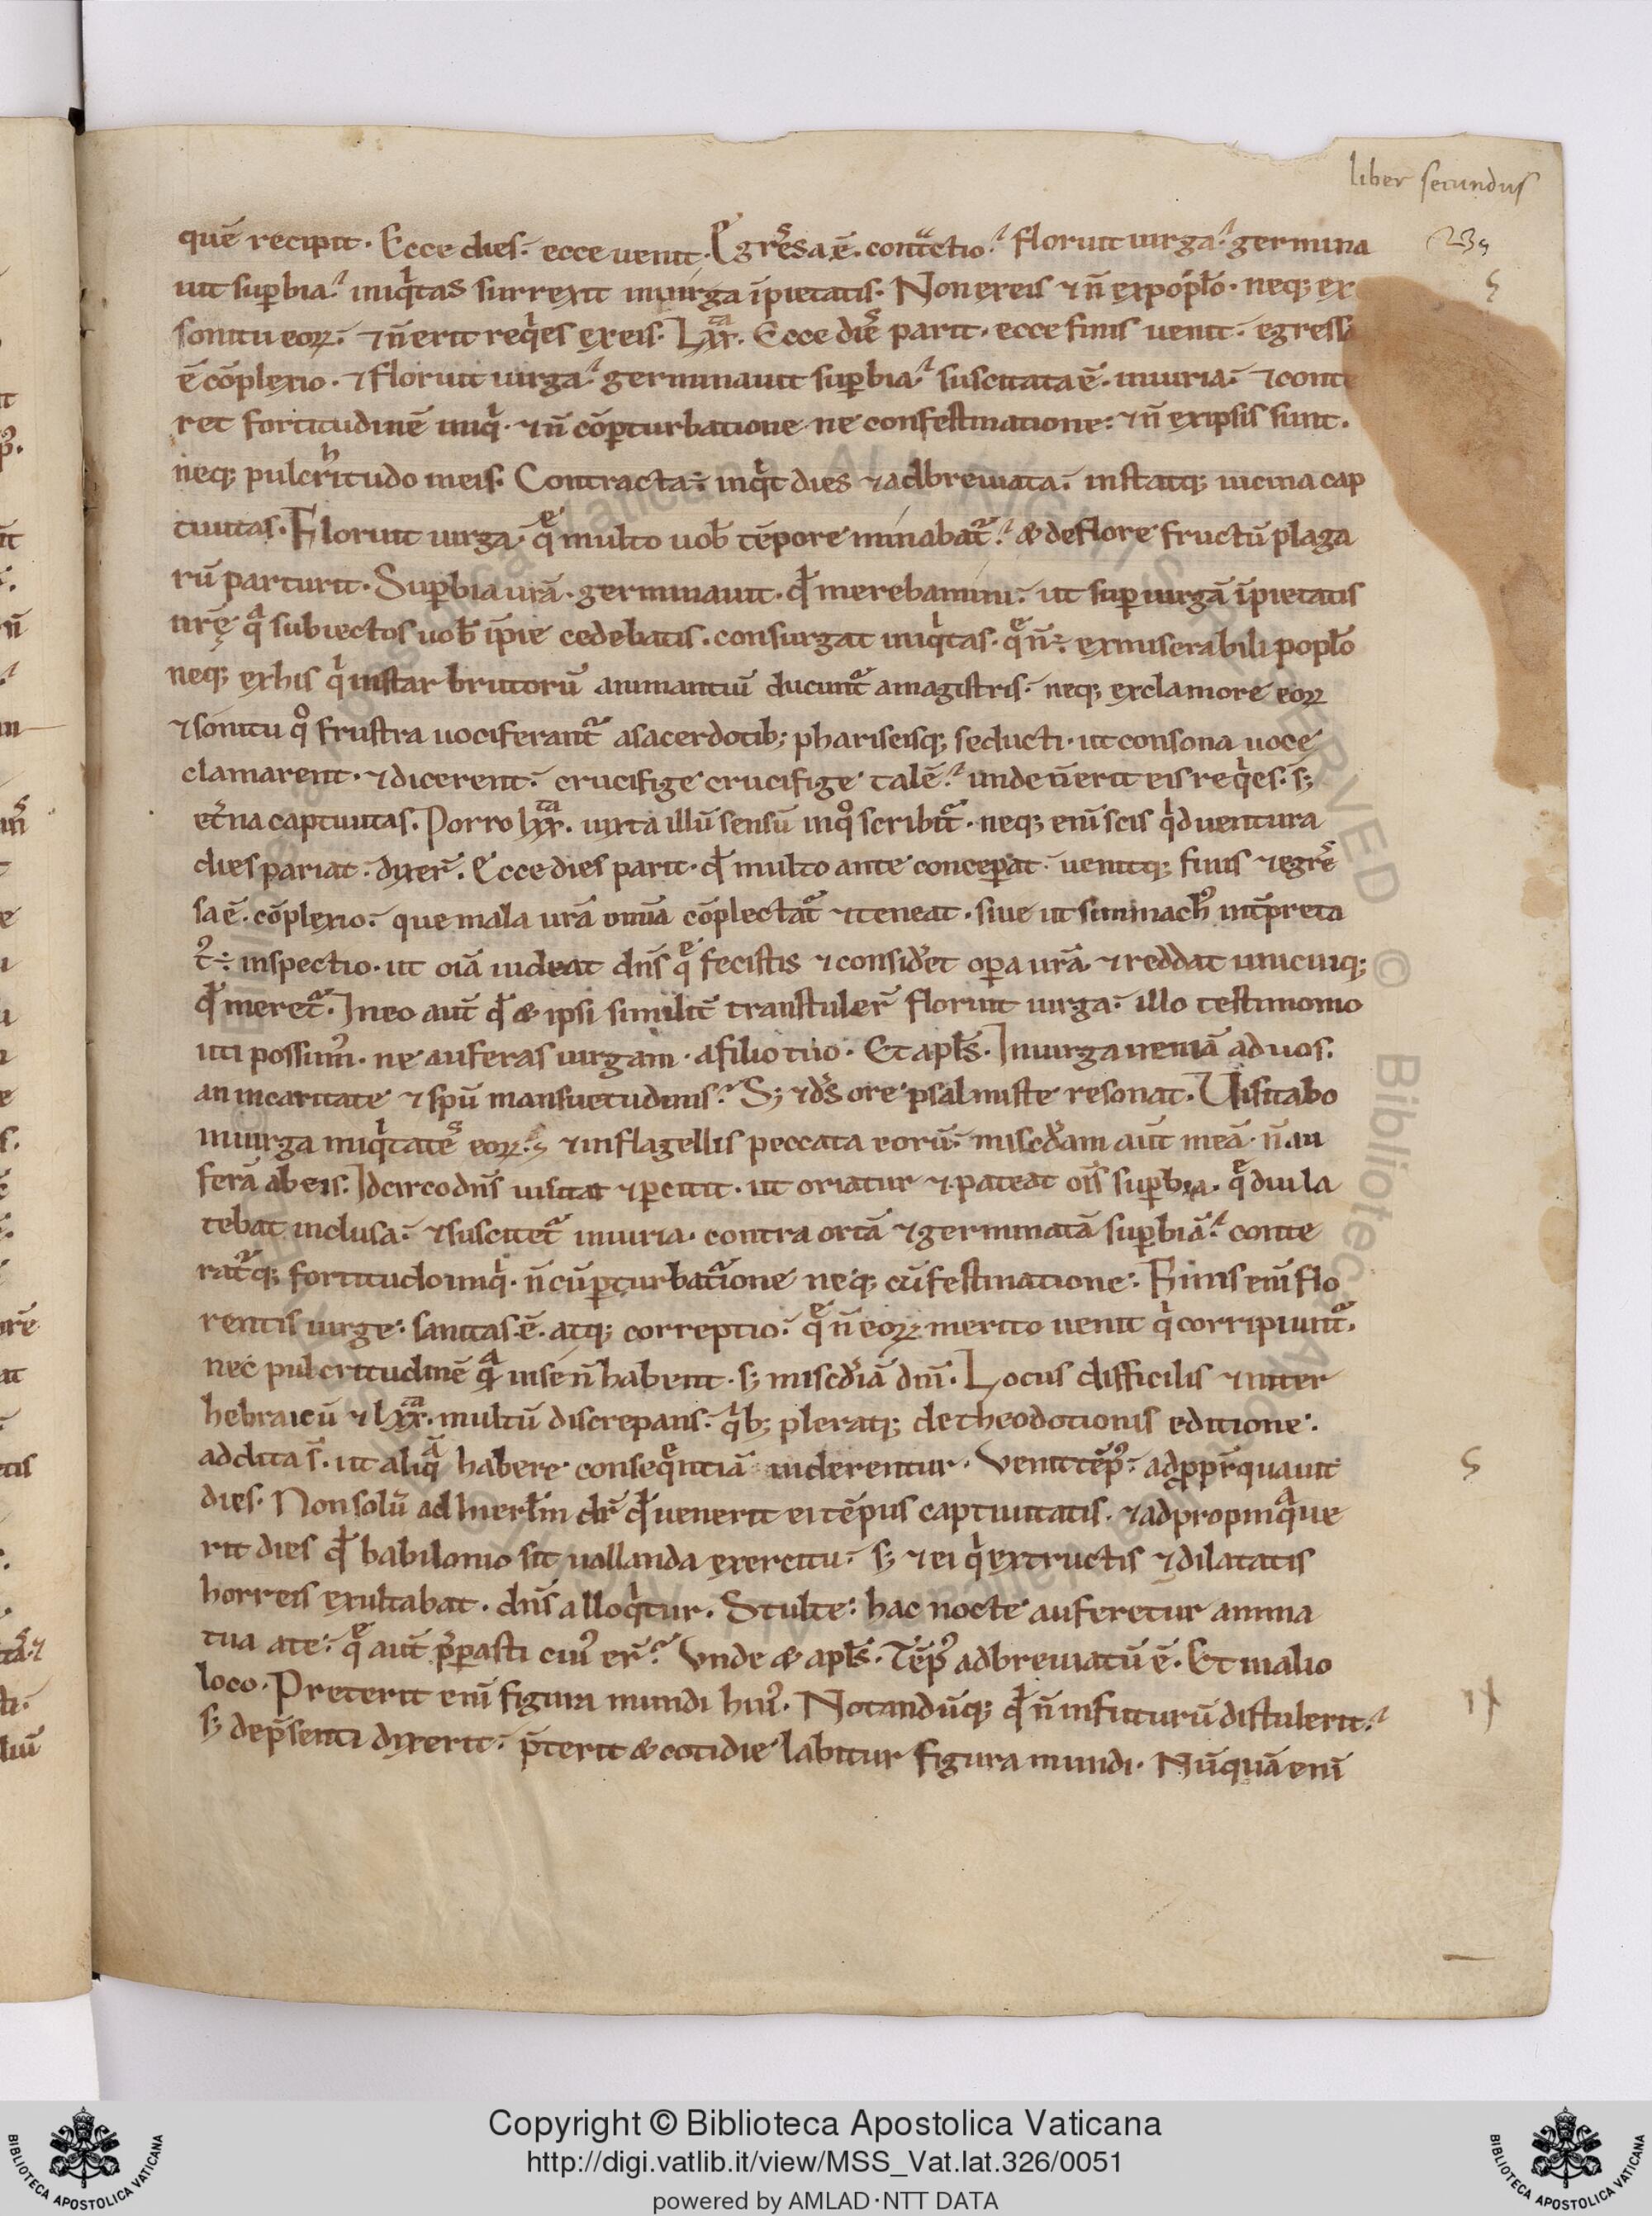 liber secundus
quē recipit. Ecce dies: ecce uenit. Egreſsa ē. contͣctio: floruit uirga: germina
uit suꝑbia: iniqͥtas surrexit inuirga īpietatis. Non exeis ⁊ n̄ expoplo. neq; ex
sonitu eoꝝ: ⁊ n̄ erit reqͥes exeis. Lxxͭͣ. Ecce dies parit. ecce finis uenit: egressa
ē cōplexio. ⁊ floruit uirga: germinauit suꝑbia: suscitata ē. iniuria: ⁊ conte
ret fortitudinē iniqͥ. ⁊ n̄ cōꝑturbatione ne confestinatione: ⁊ n̄ exipsis sunt.
neq; pulcrͪitudo ineis. Contracta: inqͥt dies ⁊ adbreuiata: instatq; uicina cap
tiuitas. Floruit uirga. qͤ multo uob tēpore minabatᷓ: & deflore fructū plaga
rū parturit. Suꝑbia urā. germinauit. qđ merebamini: ut suꝑ uirgā īpietatis
nrę̄ qͣ subiectos uob īpie cedebatis. consurgat iniqͥtas. qͤ n̄: exmiserabili poplo
neq; exhis qͥ instar brutorū animantiū ducuntᷓ amagistris: neq; exclamore eoꝝ
⁊ sonitu qͦ frustra uociferantᷓ asacerdotib; phariseisq; seducti. ut consona uoce
clamarent. ⁊ dicerent: crucifige crucifige talē: unde n̄ erit eis reqͥes. s;
et̄na captiuitas. Porro lxxͭͣ. iuxta illū sensū inqͦ scribitᷓ. neq; enī scis qͥd uentura
dies pariat: dixer̄. Ecce dies parit. qđ multo ante conceꝑat: uenitq; finis ⁊ egreſ
sa ē. cōplexio: que mala urā omīa cōplectatᷓ ⁊ teneat. siue ut simmach᷒ int̄preta
t᷒: inspectio. ut oīa uideat dn̄s qͤ fecistis ⁊ consid̓et oꝑa urā. ⁊ reddat unicuiq;
qđ meretᷓ. Ineo aut̄ qđ & ipsi similit̄ transtuler̄ floruit uirga: illo testimonio
uti possim᷒. ne auferas uirgam. afilio tuo. Et apls̄. Inuirga ueniā ad uos.
an incaritate ⁊ spū mansuetudinis? S; ⁊ ds̄ ore psalmiste resonat. Uisitabo
inuirga iniqͥtates eoꝝ: ⁊ inflagellis peccata eorū: misc̄dam aut̄ meā. n̄ au
ferā abeis. Idcirco dn̄s uisitat ⁊ ꝑcutit. ut oriatur ⁊ pateat ois̄ suꝑbia. qͤ diu la
tebat inclusa: ⁊ suscitetᷓ iniuria. contra ortā ⁊ germinatā suꝑbiā: conte
ratᷓq; fortitudo iniqͥ. n̄ cū ꝑturbatione neq; cū festinatione: Finis enī flo
rentis uirge: sanitas. ē. atq; correptio: qͤ n̄ eoꝝ merito uenit qͥ corripiuntᷓ.
nec pulcritudinē qͣ inse n̄ habent. s; misc̄diā dn̄i. Locus difficilis ⁊ inter
hebraicū ⁊ lxxͭͣ. multū discrepans: qͥb; pleraq; detheodotionis editione:
addita s̄. ut aliqͣ̄ habere conseqͤntiā uiderentur. Venit tēp᷒: adꝓpr̄quauit
dies. Non solū ad hierlm̄ dr̄ qđ uenerit ei tēpus captiuitatis. ⁊ adpropinqͣue
rit dies qđ babilonio sit uallanda exercitu: s; ⁊ ei qͥ extructis ⁊ dilatatis
horreis exultabat. dn̄s alloqͥtur. Stulte: hac nocte auferetur anima
tua ate: qͤ aut̄ p̄ꝑasti cui᷒ er̄? Vnde & apls̄. Tēp᷒ adbreuiatū ē. Et inalio
loco. Preterit enī figura mundi hui᷒. Notandūq; qđ n̄ infuturū distulerit:
s; dep̄senti dixerit: p̄terit & cotidie labitur figura mundi. Nūquā enī
Copyright © Biblioteca Apostolica Vaticana
http://digi.vatlib.it/view/MSS_Vat.lat.326/0051
powered by AMLAD·NTT DATA
BIBLIOTECA APOSTOLICA VATICANA
BIBLIOTECA APOSTOLICA VATICANA